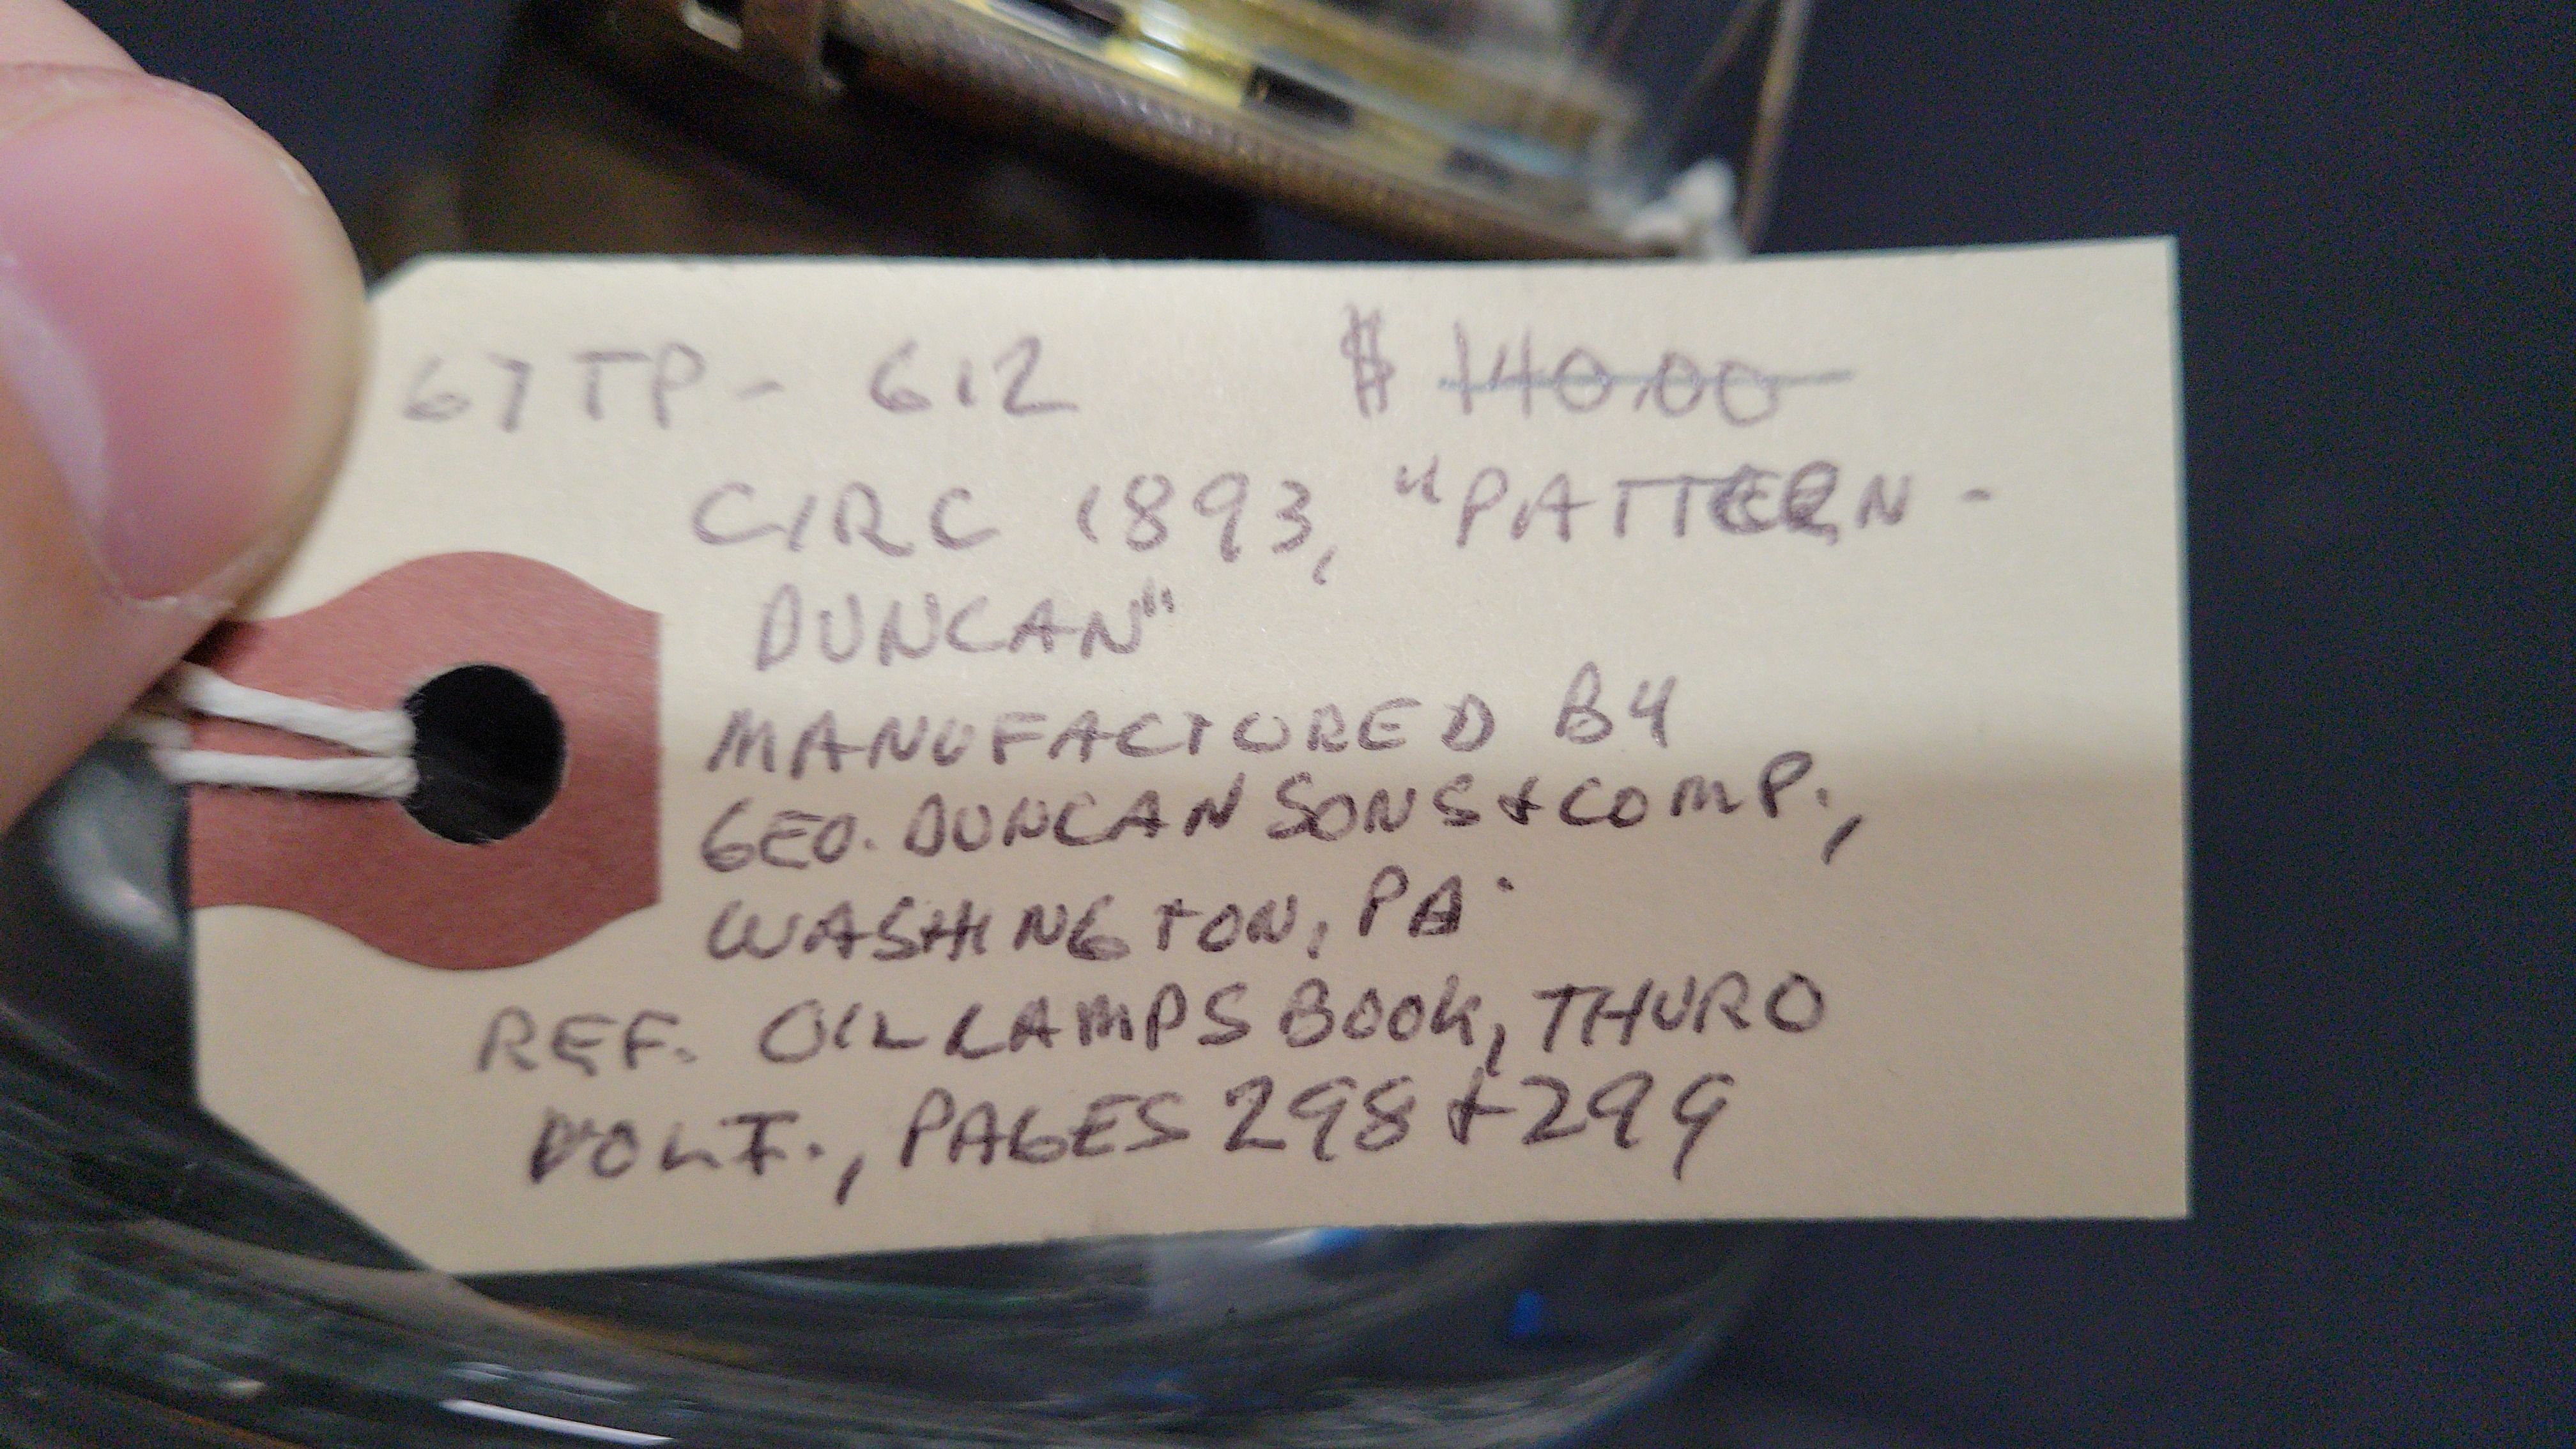 67TP - 612 $ 140.00
CIRC 1893, "PATTERN -
DUNCAN"
MANUFACTURED BY
GEO. DUNCAN SONS & COMP.,
WASHINGTON, PA.
REF. OIL LAMPS BOOK, THURO
VOL I., PAGES 298 & 299